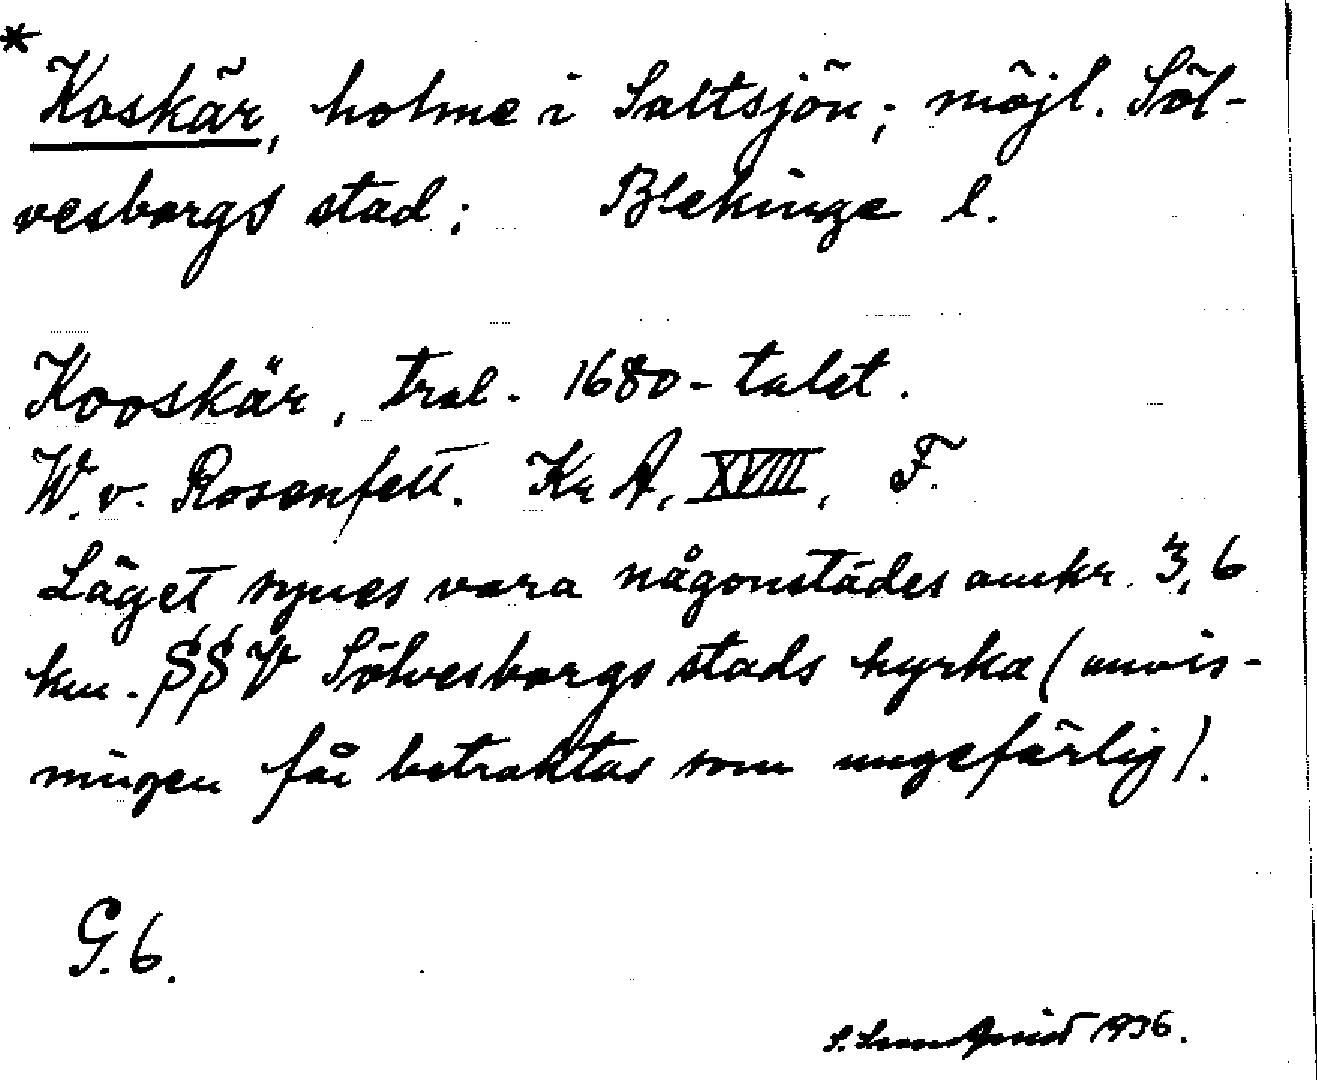 * Koskär, holme i Saltsjön; möjl. Söl-
vesborgs stad; Blekinge l.
Kooskär, trol. 1680-talet.
W. v. Rosenfelt. Kr A, XVIII, F.
Läget synes vara någonstädes omkr. 3,6
km. SSV Sölvesborgs stads kyrka (anvis-
ningen får betraktas som ungefärlig).
G. 6.
S. 1936.